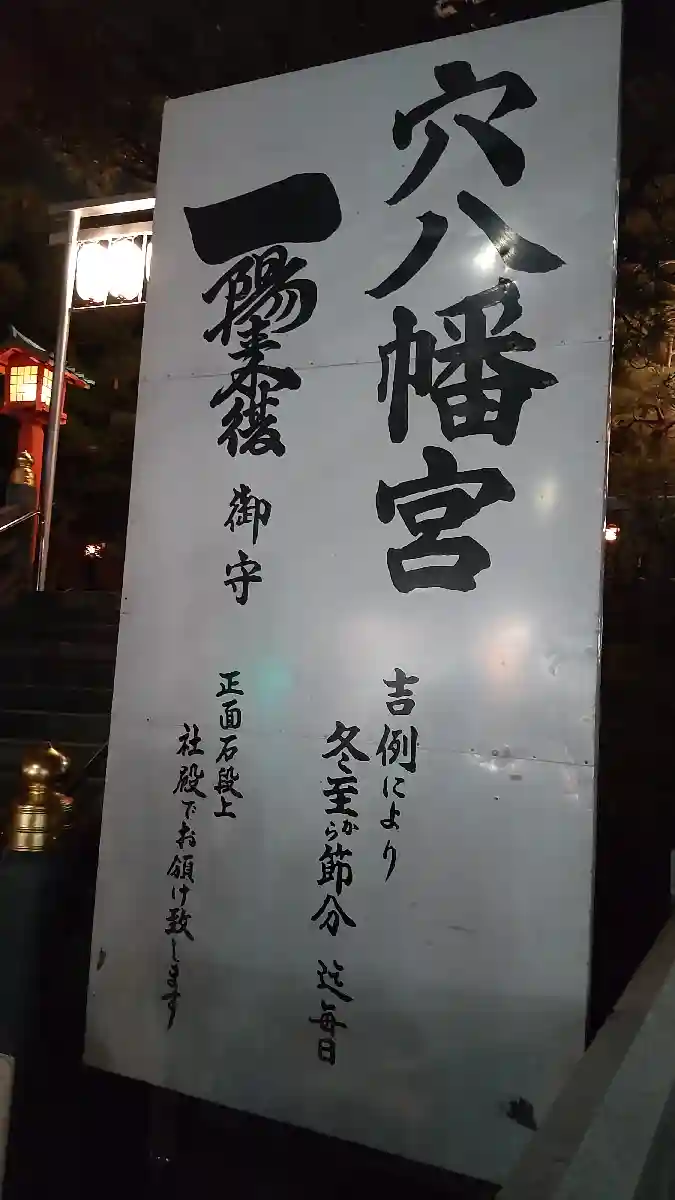 穴八幡宮
吉例により
冬至から節分 迄毎日
一陽来復 御守
正面石段上
社殿でお領け致します